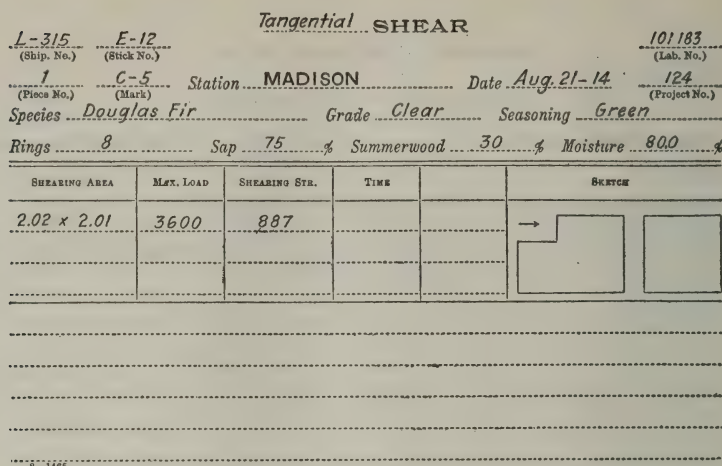 Tangential SHEAR
L-315 E-12 101183
(Ship. No.) (Stick No.) (Lab. No.)
1 C-5 Station MADISON Date Aug. 21-14 124
(Piece No.) (Mark) (Project No.)
Species Douglas Fir Grade Clear Seasoning Green
Rings 8 Sap 75 % Summerwood 30 % Moisture 80.0 %
SHEARING AREA MAX. LOAD SHEARING STR. TIME SKETCH
2.02 x 2.01 3600 887